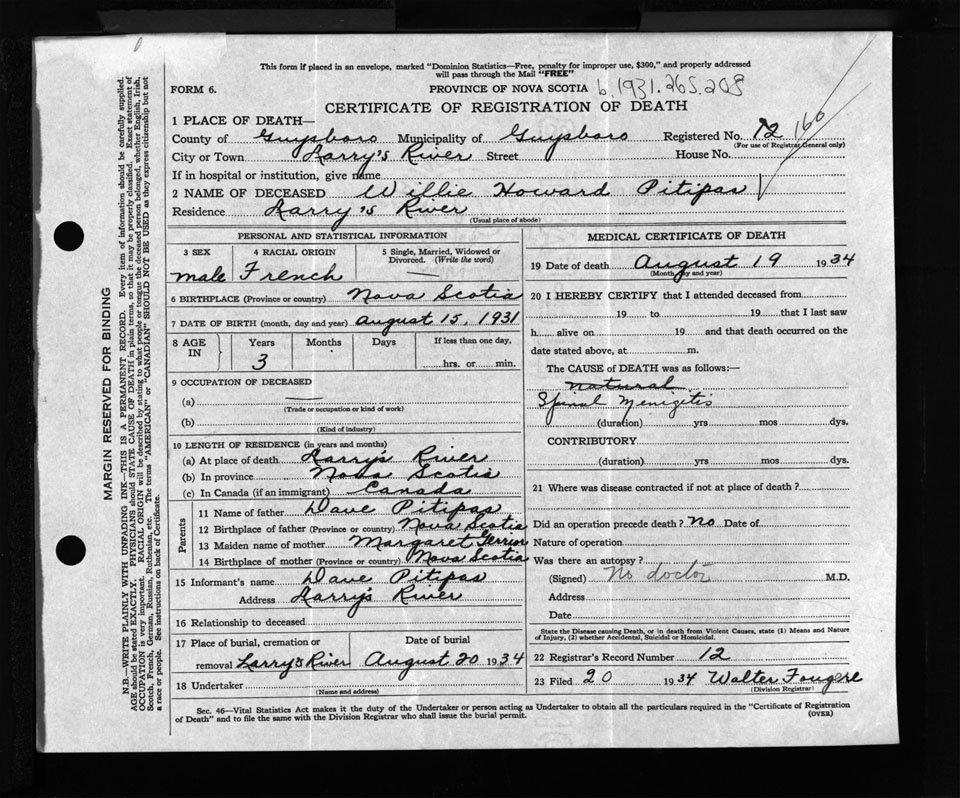 This form if placed in an envelope, marked "Dominion Statistics—Free, penalty for improper use, $300," and properly addressed
will pass through the Mail "FREE"
FORM 6. PROVINCE OF NOVA SCOTIA b.1931.265.208
CERTIFICATE OF REGISTRATION OF DEATH
1 PLACE OF DEATH—
County of Guysboro Municipality of Guysboro Registered No. 12 160
(For use of Registrar General only)
City or Town Larry's River Street House No.
If in hospital or institution, give name
2 NAME OF DECEASED Willie Howard Pitipas
Residence Larry's River
(Usual place of abode)
PERSONAL AND STATISTICAL INFORMATION
3 SEX 4 RACIAL ORIGIN 5 Single, Married, Widowed or
Divorced. (Write the word)
male French
6 BIRTHPLACE (Province or country) Nova Scotia
7 DATE OF BIRTH (month, day and year) August 15, 1931
8 AGE IN Years Months Days If less than one day,
3 hrs. or min.
9 OCCUPATION OF DECEASED
(a)
(Trade or occupation or kind of work)
(b)
(Kind of industry)
10 LENGTH OF RESIDENCE (in years and months)
(a) At place of death Larry's River
(b) In province Nova Scotia
(c) In Canada (if an immigrant) Canada
Parents
11 Name of father Dave Pitipas
12 Birthplace of father (Province or country) Nova Scotia
13 Maiden name of mother Margaret Gerrior
14 Birthplace of mother (Province or country) Nova Scotia
15 Informant's name Dave Pitipas
Address Larry's River
16 Relationship to deceased
17 Place of burial, cremation or Date of burial
removal Larry's River August 20 1934
18 Undertaker
(Name and address)
MEDICAL CERTIFICATE OF DEATH
19 Date of death August 19 1934
(Month, day and year)
20 I HEREBY CERTIFY that I attended deceased from
19 to 19 that I last saw
h alive on 19 and that death occurred on
date stated above, at m.
The CAUSE of DEATH was as follows:—
Natural
Spinal Menigetis
(duration) yrs mos dys.
CONTRIBUTORY
(duration) yrs mos dys.
21 Where was disease contracted if not at place of death?
Did an operation precede death? No Date of
Nature of operation
Was there an autopsy?
(Signed) No doctor M.D.
Address
Date
State the Disease causing Death, or in death from Violent Causes, state (1) Means and Nature
of Injury, (2) whether Accidental, Suicidal or Homicidal.
22 Registrar's Record Number 12
23 Filed 20 1934 Walter Fougere
(Division Registrar)
Sec. 46—Vital Statistics Act makes it the duty of the Undertaker or person acting as Undertaker to obtain all the particulars required in the "Certificate of Registration
of Death" and to file the same with the Division Registrar who shall issue the burial permit. (OVER)
MARGIN RESERVED FOR BINDING
N.B.—WRITE PLAINLY WITH UNFADING INK—THIS IS A PERMANENT RECORD. Every item of information should be carefully supplied.
AGE should be stated EXACTLY. PHYSICIANS should STATE CAUSE OF DEATH in plain terms, so that it may be properly classified. Exact statement of
OCCUPATION is very important. RACIAL ORIGIN will be described by stating to what people or tongue the deceased person belonged, whether English, Irish,
Scotch, French, German, Russian, Ruthenian, etc. The terms "AMERICAN" or "CANADIAN" SHOULD NOT BE USED as they express citizenship but not
a race or people. See instructions on back of Certificate.